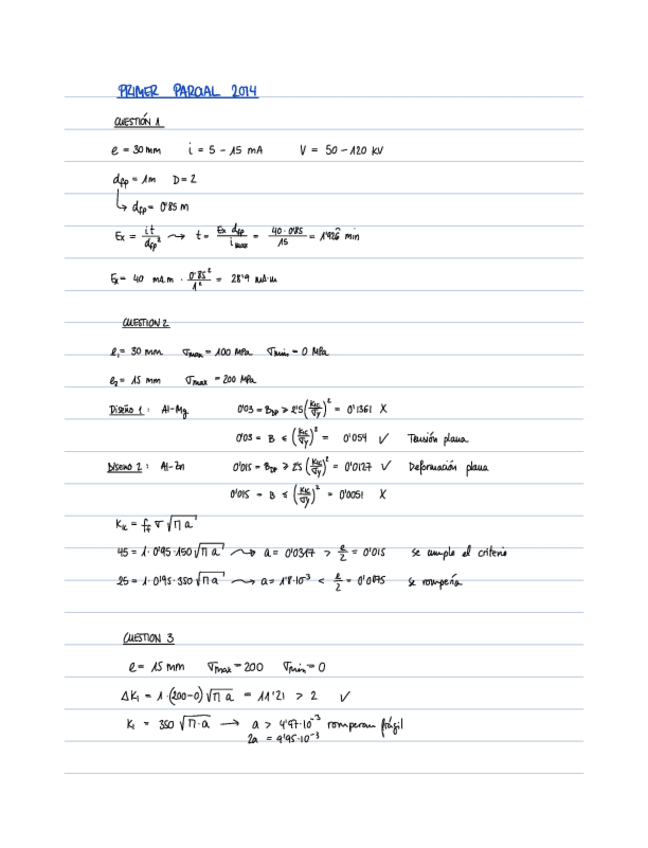 PRIMER PARCIAL 2014
CUESTIÓN 1
e = 30 mm i = 5 - 15 mA V = 50 - 120 KV
dfp = 1m D = 2
↳ dfp = 0'85 m
Ex = it/dfp² ⇝ t = Ex dfp/imax = 40·0'85/15 = 1'926 min
Ex = 40 mA.m · 0'85²/1² = 28'9 mA·m
CUESTION 2
e₁ = 30 mm σmax = 100 MPa σmin = 0 MPa
e₂ = 15 mm σmax = 200 MPa
Diseño 1: Al-Mg 0'03 = BDP ≥ 2'5(KIC/σy)² = 0'1361 X
0'03 = B ≤ (KIC/σy)² = 0'054 ✓ Tensión plana
Diseño 2: Al-Zn 0'015 = BDP ≥ 2'5(KIC/σy)² = 0'0127 ✓ Deformación plana
0'015 = B ≤ (KIC/σy)² = 0'0051 X
KIC = f σ √Π a
45 = 1·0'95·150 √Π a ⇝ a = 0'0317 > e/2 = 0'015 se cumple el criterio
25 = 1·0'95·350 √Π a ⇝ a = 1'8·10⁻³ < e/2 = 0'0075 se rompería
CUESTION 3
e = 15 mm σmax = 200 σmin = 0
ΔK₁ = 1·(200-0)√Π a = 11'21 > 2 ✓
K₁ = 350 √Π·a → a > 4'97·10⁻³ romperan frágil
2a = 9'95·10⁻³